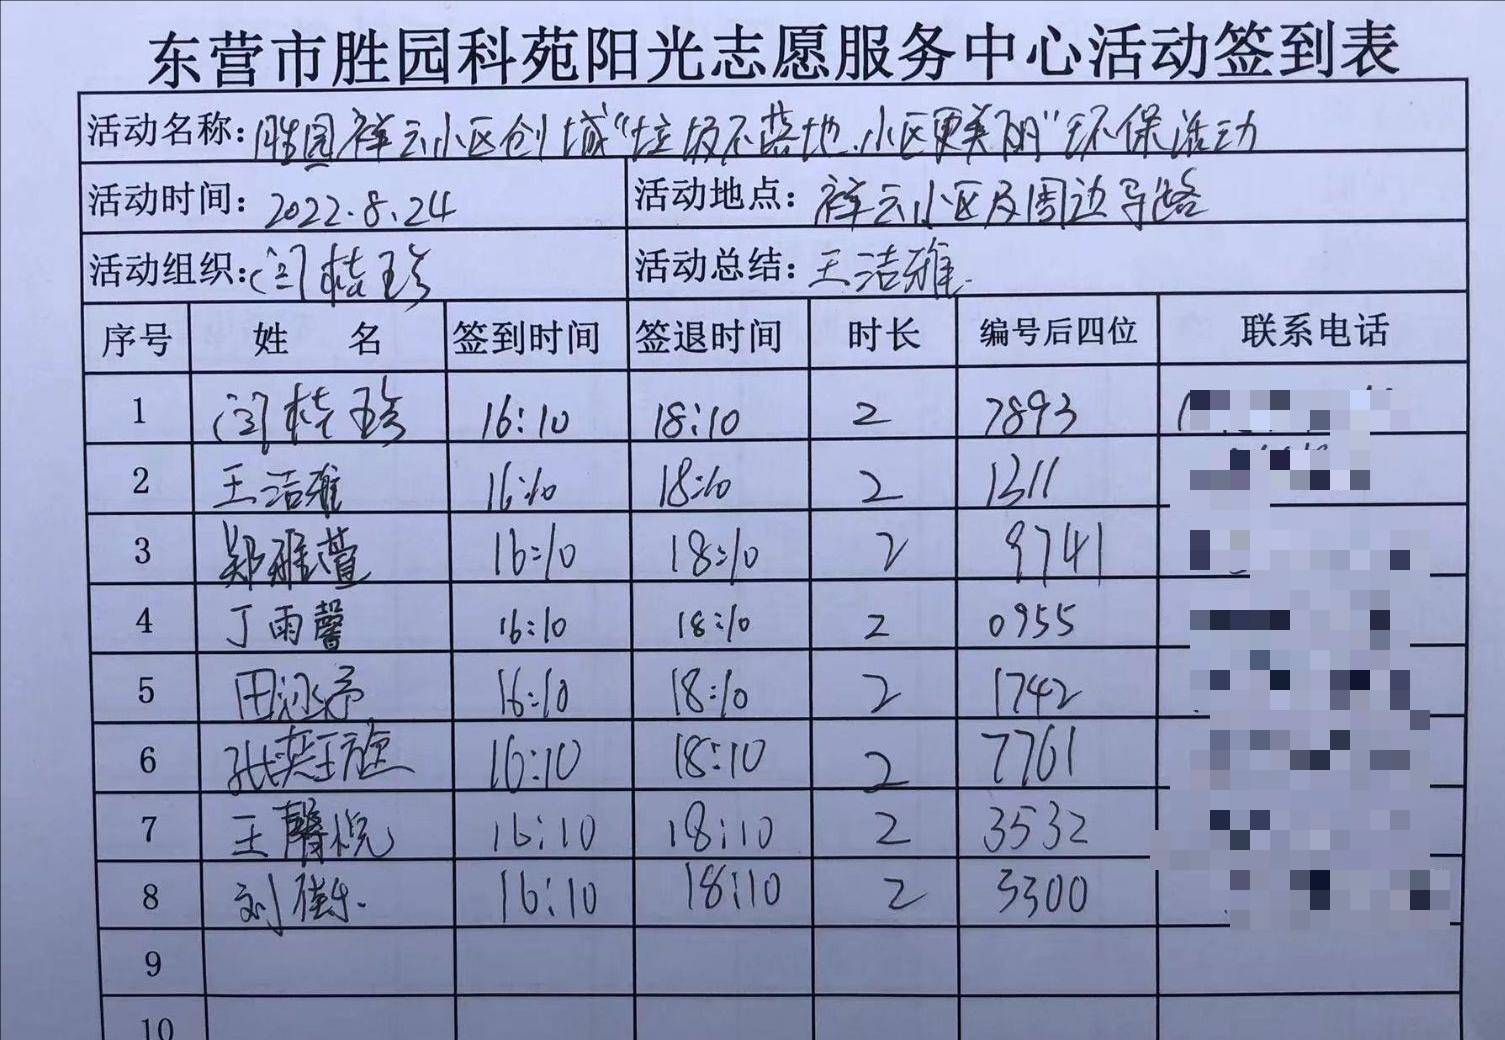 东营市胜园科苑阳光志愿服务中心活动签到表
活动名称：胜园祥云小区创城“垃圾不落地.小区更美丽”环保活动
活动时间：2022.8.24 活动地点：祥云小区及周边马路
活动组织：闫桂珍 活动总结：王洁雅
序号 姓名 签到时间 签退时间 时长 编号后四位 联系电话
1 闫桂珍 16:10 18:10 2 7893
2 王洁雅 16:10 18:10 2 1311
3 郑雅萱 16:10 18:10 2 9741
4 丁雨馨 16:10 18:10 2 0955
5 田 16:10 18:10 2 1742
6 张 16:10 18:10 2 7761
7 王馨悦 16:10 18:10 2 3532
8 刘 16:10 18:10 2 3300
9
10